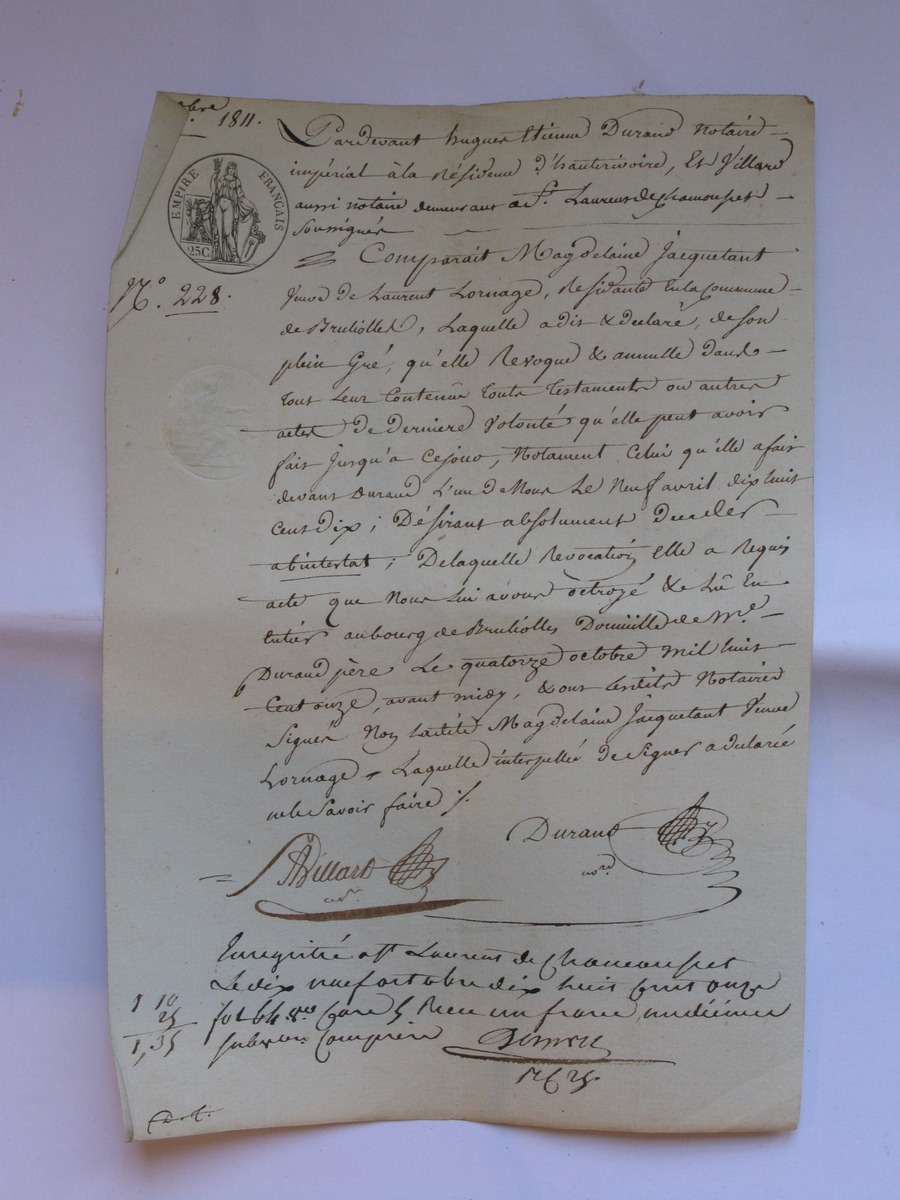 bre 1811.
Pardevant hugues Etienne Durand Notaire
impérial à la Résidence d'hauterivoire, Et Villard
aussi notaire demeurant a St. Laurent de Chamousset
Soussignés
EMPIRE FRANÇAIS
25C.
Comparait Magdelaine Jacquetant
N°. 228.
Veuve de Laurent Lornage, Residante En la Commune
de Brulliolles, Laquelle a dit & declaré, de son
plein Gré, qu'elle Revoque & annulle dans
tout Leur Contenû touts testaments ou autres
actes De Derniere Volonté qu'elle peut avoir
fait Jusqu'a Cejour, Notament Celui qu'elle a fait
devant Durand L'un de Nous Le Neuf avril dix huit
Cent Dix ; Désirant absolument Deceder
abintestat ; De laquelle Revocation Elle a Requis
acte que Nous Lui avons octroyé & Lû En
Entier au bourg de Brulliolles Domicille de Me.
Durand père Le quatorze octobre Mil huit
Cent onze, avant midy, & ont Lesdits Notaires
Signés Non Ladite Magdelaine Jacquetant Veuve
Lornage Laquelle interpellée de Signer a declaré
ne le Savoir faire ./.
Durand
nore
Villard
Enregistré a St Laurent de Chamousset
Le dix neuf octobre dix huit Cent onze
fol 64 Case 5 Recu un franc un décime
1 10
25
1,35
Subvon Comprise